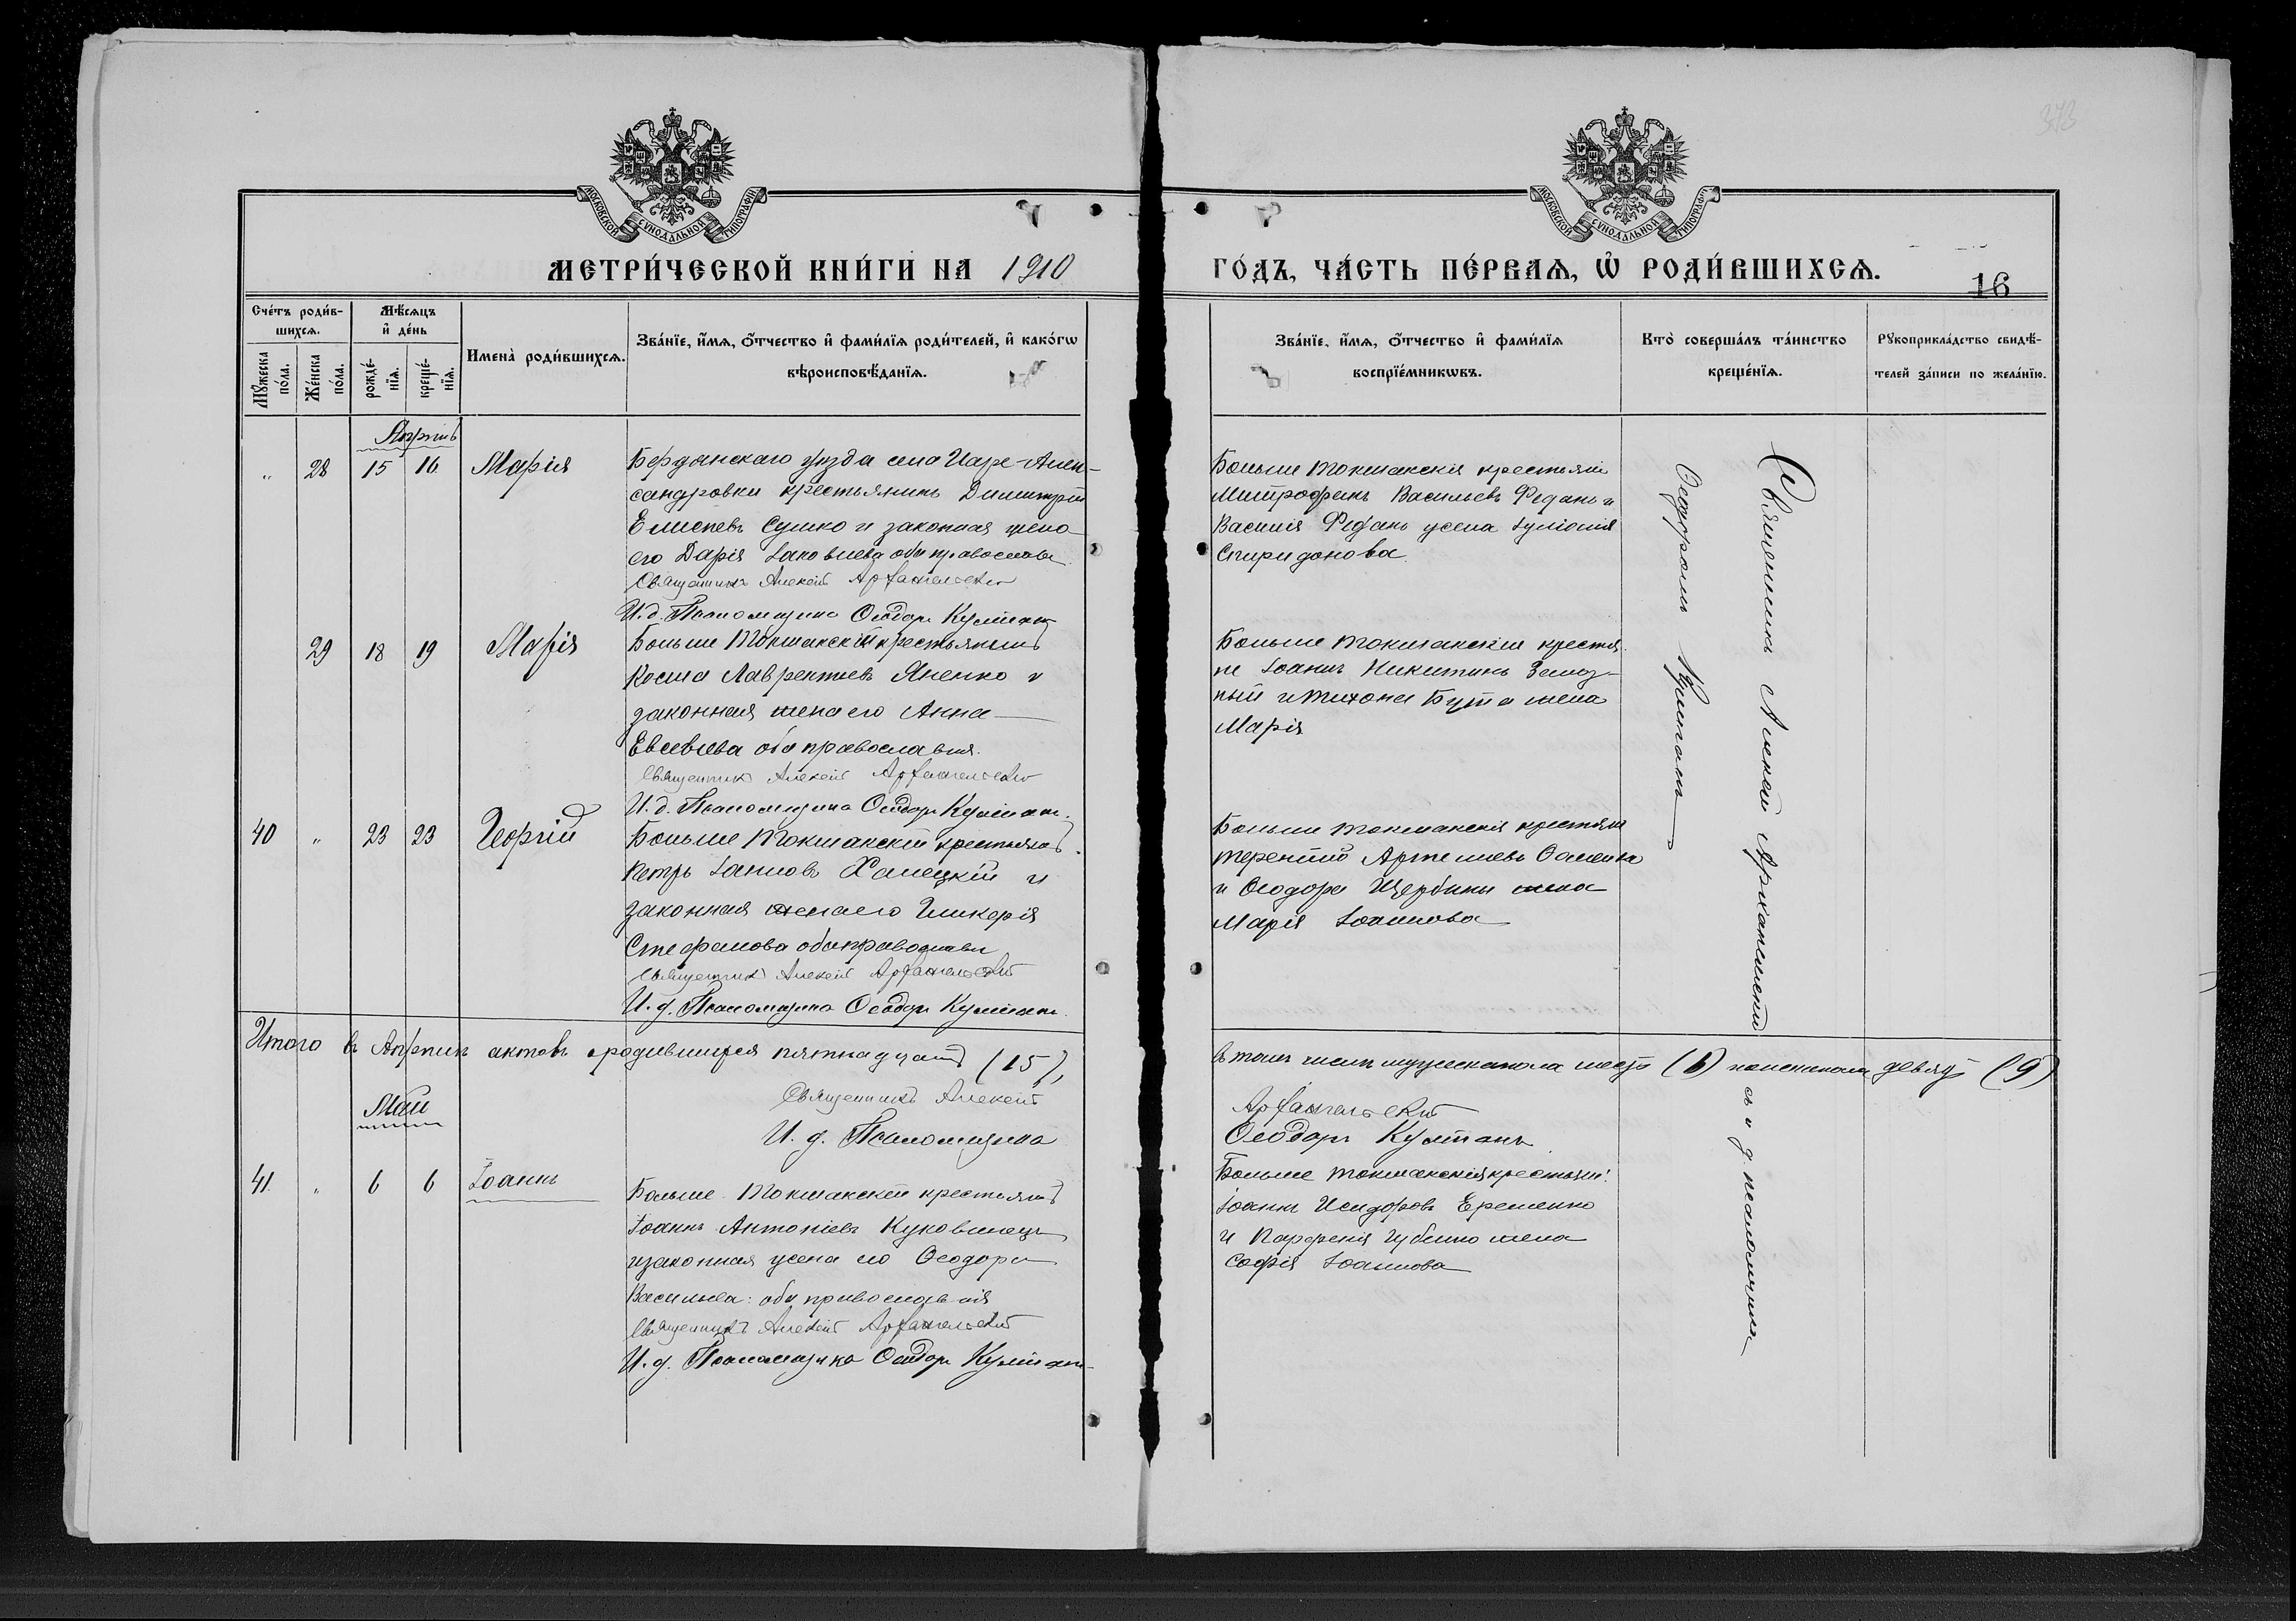 373
МОСКОВСКОЙ СѴНОДАЛЬНОЙ ТИПОГРАФІИ
МОСКОВСКОЙ СѴНОДАЛЬНОЙ ТИПОГРАФІИ
МЕТРИ́ЧЕСКОЙ КНИ́ГИ НА 1910
ГО́ДЪ, ЧА́СТЬ ПЕ́РВАѦ, Ѡ҆ РОДИ́ВШИХСѦ.
16
Сче́тъ роди́в-
шихсѧ.
Мꙋ́жеска
по́ла.
Же́нска
по́ла.
Мѣ́сѧцъ
и҆ де́нь
рожде́-
нїѧ.
креще́-
нїѧ.
Имена̀ роди́вшихсѧ.
Зва́нїе, и҆́мѧ, ѻ҆́тчество и҆ фами́лїѧ роди́телей, и҆ како́гѡ
вѣроисповѣ́данїѧ.
Зва́нїе, и҆́мѧ, ѻ҆́тчество и҆ фами́лїѧ
воспрїе́мникѡвъ.
Кто̀ соверша́лъ та́инство
креще́нїѧ.
Рꙋкоприкла́дство свидѣ́-
телей за́писи по жела́нїю.
Апрѣль
„ 28 15 16 Марія
Бердянскаго уѣзда села Царе-Алек-
сандровки крестьянинъ Димитрій
Елисѣевъ Сушко и законная жена
его Дарія Іаковлева оба православн.
Священникъ Алексій Архангельскій
И. д. Псаломщика Ѳеодоръ Култанъ
Больше Токмакскія крестьяне
Митрофанъ Васильевъ Редань и
Василія Редань жена Іуліанія
Спиридонова
29 18 19 Марія
Больше Токмакскій крестьянинъ
Косма Лаврентіевъ Яненко и
законная жена его Анна
Евсевіева оба православныя.
Священникъ Алексій Архангельскій
И. д. Псаломщика Ѳеодоръ Култанъ.
Больше Токмакскіе крестья
не Іоаннъ Никитинъ
и Тихона Бута жена
Марія
40 „ 23 23 Георгій
Больше Токмакскій крестьянинъ
Петръ Іанновъ Халецкій и
законная жена его Гликерія
Стефанова оба православн
Священникъ Алексій Архангельскій
И. д. Псаломщика Ѳеодоръ Култанъ.
Больше Токмакскія крестьяне
Терентій Артемьевъ
и Ѳеодора Щербины жена
Марія Іоаннова
Священникъ Алексій Архангельскій
съ и. д. псаломщика
Ѳеодоромъ Култаномъ
Итого въ Апрѣлѣ актовъ о родившихся пятнадцать (15),
въ томъ числѣ мужеска пола шесть (6) женска пола девять (9)
Священникъ Алексій Архангельскій
И. д. Псаломщика Ѳеодоръ Култанъ
Май
41. „ 6 6 Іоаннъ
Больше Токмакскій крестьянинъ
Іоаннъ Антоніевъ Куковинецъ
и законная жена его Ѳеодора
Васильева: оба православныя
Священникъ Алексій Архангельскій
И. д. Псаломщика Ѳеодоръ Култанъ
Больше Токмакскія крестьяне:
Іоаннъ Исидоровъ Еременко
и Парфенія Губенко жена
Софія Іоаннова